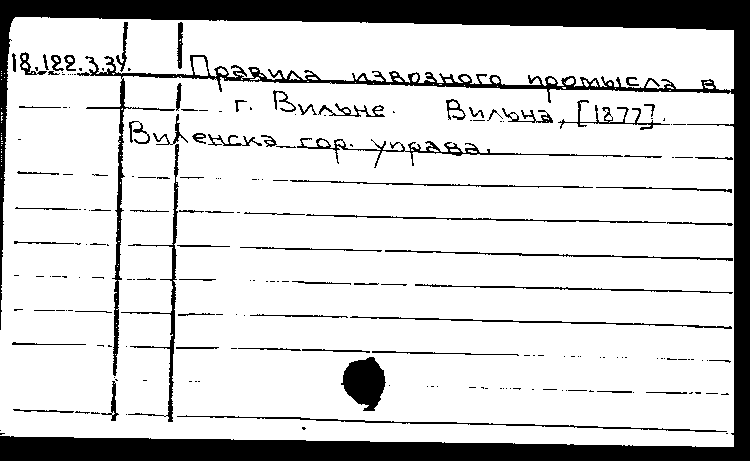 18.122.3.34. Правила извозного промысла в
г. Вильне. Вильна, [1877].
Виленска гор. управа.